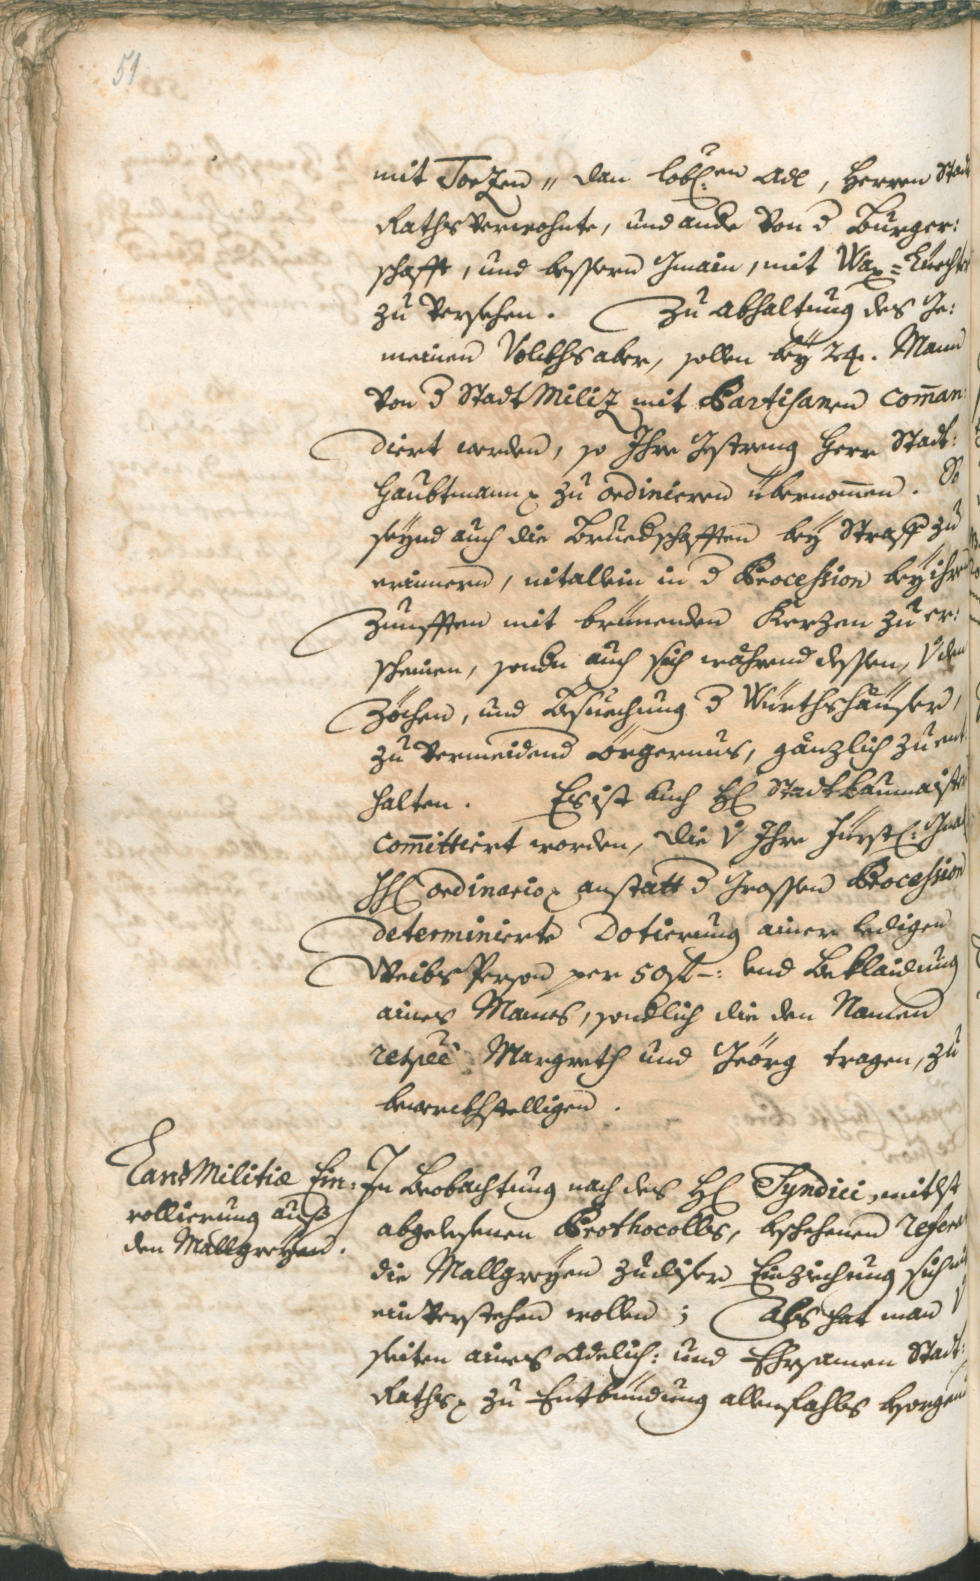 51
mit Torzen „ dan lobl:en Adl, Herren Stadt
Raths verwohnte, und ande von d Burger:
schafft, und bessern Gmain, mit Wax=Liecht
zu versehen. Zu abhaltung des Ge:
meinen Volckhs aber, sollen bey 24. Mann
von d Stadt Miliz mit Partisanen com̄an:
diert werden, so Ihro Gstreng Herr Stadt:
haubtmann zu ordinieren übernom̄en. So
seynd auch die Bruedschafften bey Straff zu
erinnern, nit allein in d Procession bey ihren
Zünfften mit brinenden Kerzen zu er:
scheinen, sondn auch sich während dessen, v den
Zöchen, und Besuechung d Würthshäuser,
zu vermeidend Örgernus, gänzlich zu ent
halten. Es ist auch H: Stadtbaumaister
com̄ittiert worden, die v Ihro Fürstl: Gnad
H: ordinario anstatt d Grossen Procession
determinierte Dotierung ainer ledigen
Weibs Person per 50 fl –: und Beklaidung
aines Mannes, sondlich die den Namen
respee Margreth und Geörg tragen, zu
bewerckhstelligen.
Land Militiæ Ein:
rollierung auß
den Mallgreyen.
In Beobachtung nach des H: Syndici, mitlst
abgelesenen Prothocolls, beschehenen refere
die Mallgreyen zu diser Einziehung sich nit
einverstehen wollen; Als hat man v
seiten aines Adelich: und Ehrsamen Stadt:
Raths zu Entbündung allenfahls besorgend